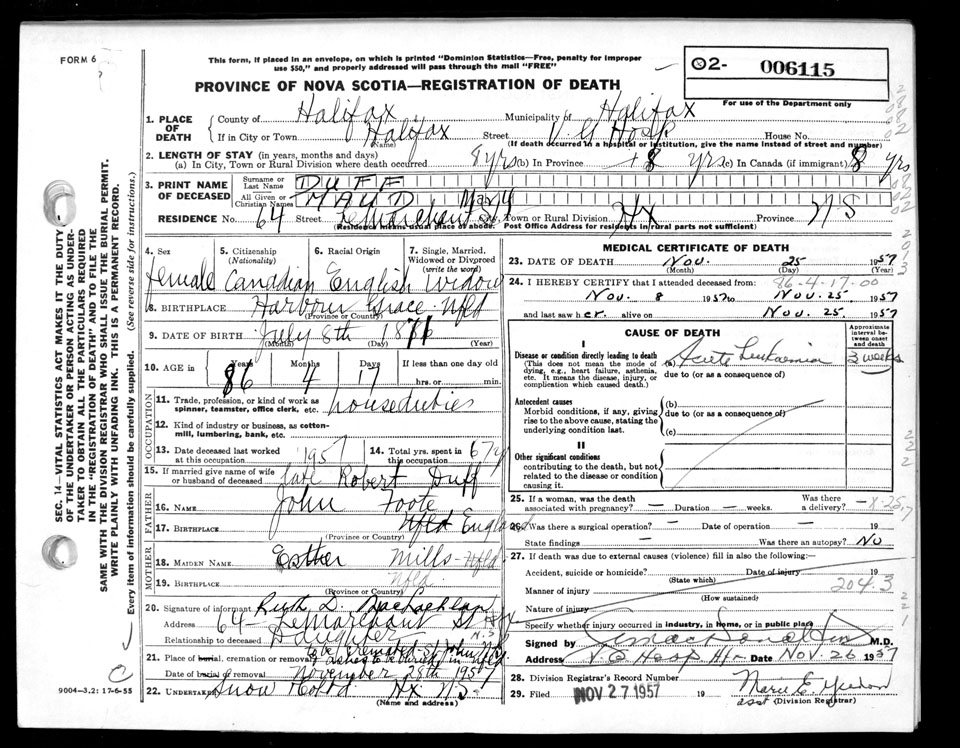 FORM 6
This form, if placed in an envelope, on which is printed "Dominion Statistics—Free, penalty for improper
use $50," and properly addressed will pass through the mail "FREE"
O2- 006115
PROVINCE OF NOVA SCOTIA—REGISTRATION OF DEATH
For use of the Department only
1. PLACE OF DEATH
County of Halifax Municipality of Halifax
If in City or Town Halifax Street V. G Hosp House No.
(Name) (If death occurred in a hospital or institution, give the name instead of street and number)
2. LENGTH OF STAY (in years, months and days)
(a) In City, Town or Rural Division where death occurred 8 yrs (b) In Province 8 yrs (c) In Canada (if immigrant) 8 yrs
3. PRINT NAME OF DECEASED
Surname or Last Name DUFF
All Given or Christian Names MAUD Mary
RESIDENCE No. 64 Street LeMarchant City, Town or Rural Division Hx Province N-S
(Residence means usual place of abode. Post Office Address for residents in rural parts not sufficient)
4. Sex 5. Citizenship (Nationality) 6. Racial Origin 7. Single, Married, Widowed or Divorced (write the word)
female Canadian English Widow
8. BIRTHPLACE Harbour Grace Nfld
(Province or Country)
9. DATE OF BIRTH July 8th 1871
(Month) (Day) (Year)
10. AGE in Years Months Days If less than one day old
86 4 17 hrs. or min.
OCCUPATION
11. Trade, profession, or kind of work as spinner, teamster, office clerk, etc. houseduties
12. Kind of industry or business, as cotton-mill, lumbering, bank, etc.
13. Date deceased last worked at this occupation 1957 14. Total yrs. spent in this occupation 67 y
15. If married give name of wife or husband of deceased late Robert Duff
FATHER
16. NAME John Foote
17. BIRTHPLACE Nfld England
(Province or Country)
MOTHER
18. MAIDEN NAME Esther Mills - Nfld
19. BIRTHPLACE Nfld.
(Province or Country)
20. Signature of informant Ruth D. MacLachlan
Address 64 LeMarchant St Hfx N.S
Relationship to deceased Daughter
to be cremated St John N.B.
21. Place of burial, cremation or removal ashes to be buried in Nfld
Date of burial or removal November 28th 1957
22. UNDERTAKER Snow Co Ltd Hx N.S
(Name and address)
9004-3.2: 17-6-55
MEDICAL CERTIFICATE OF DEATH
23. DATE OF DEATH Nov. 25 1957
(Month) (Day) (Year)
86-4-17-00
24. I HEREBY CERTIFY that I attended deceased from:
Nov. 8 1957 to Nov. 25. 1957
and last saw her alive on Nov. 25. 1957
CAUSE OF DEATH
Approximate interval between onset and death
I
Disease or condition directly leading to death (a) Acute Leukaemia 3 weeks
(This does not mean the mode of dying, e.g., heart failure, asthenia, etc. It means the disease, injury, or complication which caused death.)
due to (or as a consequence of)
Antecedent causes
Morbid conditions, if any, giving rise to the above cause, stating the underlying condition last.
(b)
due to (or as a consequence of)
(c)
II
Other significant conditions
contributing to the death, but not related to the disease or condition causing it.
25. If a woman, was the death associated with pregnancy? — Duration — weeks. Was there a delivery? —
26. Was there a surgical operation? — Date of operation — 19
State findings — Was there an autopsy? No
27. If death was due to external causes (violence) fill in also the following:—
Accident, suicide or homicide? Date of injury 19
(State which)
Manner of injury 204.3
(How sustained)
Nature of injury
Specify whether injury occurred in industry, in home, or in public place
Signed by M.D.
Address V. G Hosp Hfx Date Nov. 26 1957
28. Division Registrar's Record Number
29. Filed NOV 27 1957 19 Marie E.
asst (Division Registrar)
SEC. 14—VITAL STATISTICS ACT MAKES IT THE DUTY
OF THE UNDERTAKER OR PERSON ACTING AS UNDER-
TAKER TO OBTAIN ALL THE PARTICULARS REQUIRED
IN THE "REGISTRATION OF DEATH" AND TO FILE THE
SAME WITH THE DIVISION REGISTRAR WHO SHALL ISSUE THE BURIAL PERMIT.
WRITE PLAINLY WITH UNFADING INK. THIS IS A PERMANENT RECORD.
Every item of information should be carefully supplied. (See reverse side for instructions.)